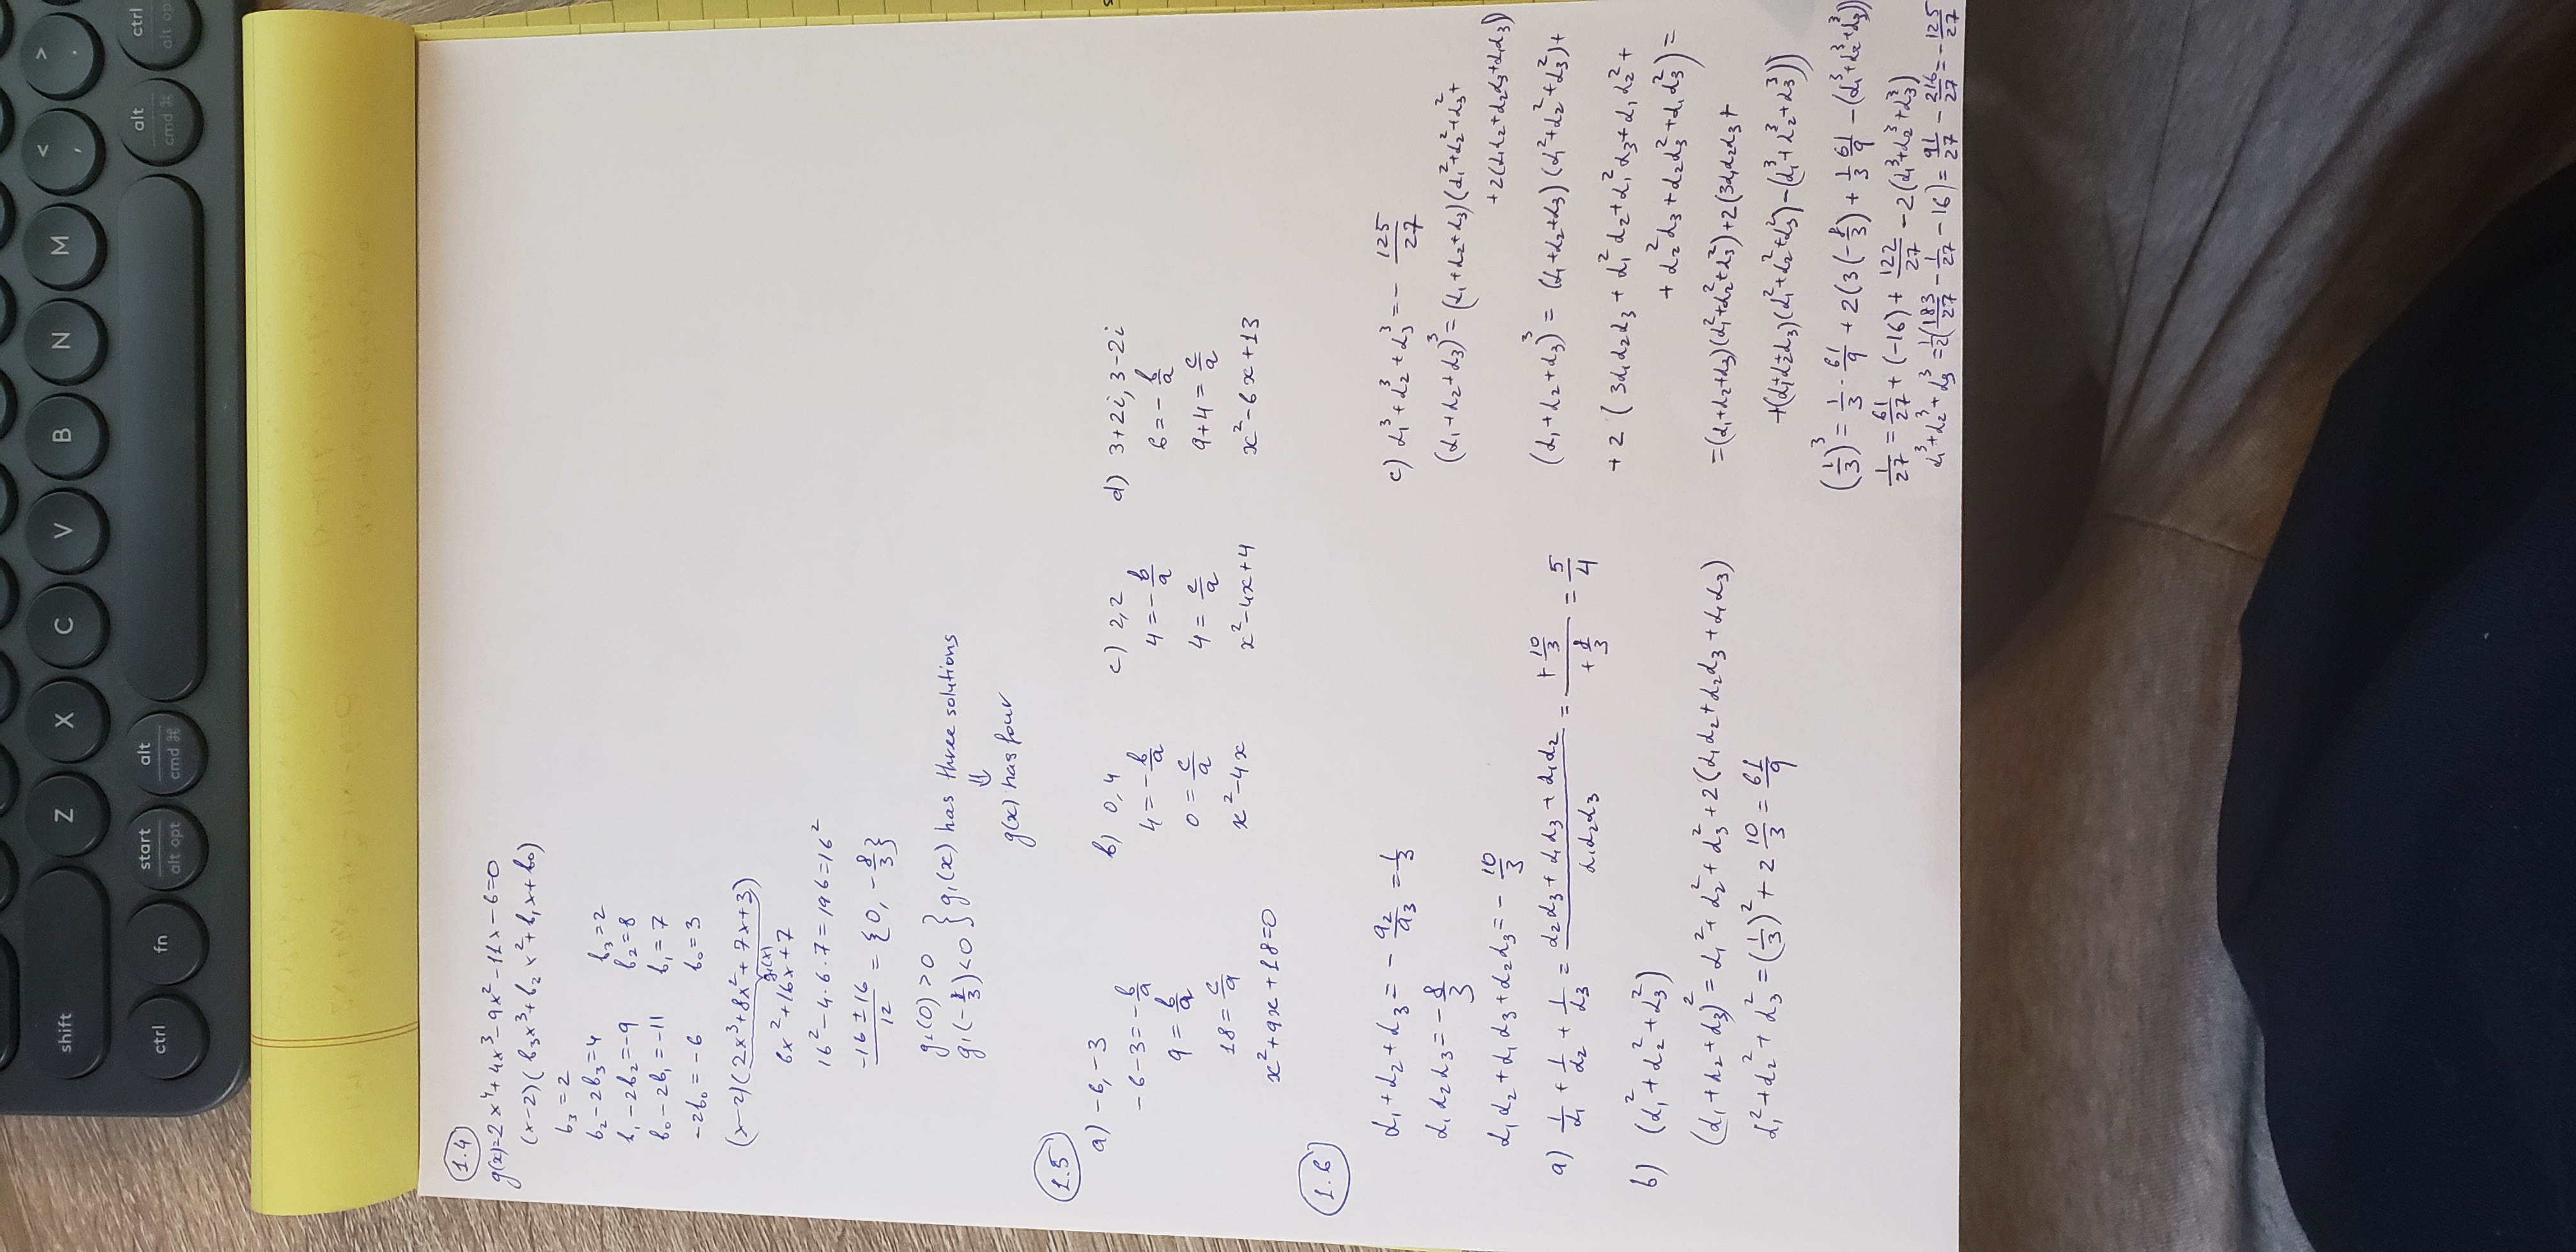 shift Z X C V B N M < , > .
ctrl fn start alt opt alt cmd ⌘ alt cmd ⌘ ctrl alt op
1.4
g(x)=2x⁴+4x³-9x²-11x-6=0
(x-2)(b₃x³+b₂x²+b₁x+b₀)
b₃=2
b₂-2b₃=4 b₃=2
b₁-2b₂=-9 b₂=8
b₀-2b₁=-11 b₁=7
-2b₀=-6 b₀=3
(x-2)(2x³+8x²+7x+3)
g₁(x)
6x²+16x+7
16²-4·6·7=196=16²
(-16±16)/12 = {0, -8/3}
g₁(0)>0
g₁(-8/3)<0 } g₁(x) has three solutions
⇓
g(x) has four
1.5
a) -6, -3
-6-3=-b/a
9=b/a
18=c/a
x²+9x+18=0
b) 0, 4
4=-b/a
0=c/a
x²-4x
c) 2, 2
4=-b/a
4=c/a
x²-4x+4
d) 3+2i, 3-2i
6=-b/a
9+4=c/a
x²-6x+13
1.6
α₁+α₂+α₃=-a₂/a₃=1/3
α₁α₂α₃=-8/3
α₁α₂+α₁α₃+α₂α₃=-10/3
a) 1/α₁+1/α₂+1/α₃=(α₂α₃+α₁α₃+α₁α₂)/(α₁α₂α₃)=(+10/3)/(+8/3)=5/4
b) (α₁²+α₂²+α₃²)
(α₁+α₂+α₃)²=α₁²+α₂²+α₃²+2(α₁α₂+α₂α₃+α₁α₃)
α₁²+α₂²+α₃²=(1/3)²+2 10/3=61/9
c) α₁³+α₂³+α₃³=-125/27
(α₁+α₂+α₃)³=(α₁+α₂+α₃)(α₁²+α₂²+α₃²+
+2(α₁α₂+α₂α₃+α₁α₃))
(α₁+α₂+α₃)³=(α₁+α₂+α₃)(α₁²+α₂²+α₃²)+
+2(3α₁α₂α₃+α₁²α₂+α₁²α₃+α₁α₂²+
+α₂²α₃+α₂α₃²+α₁α₃²)=
=(α₁+α₂+α₃)(α₁²+α₂²+α₃²)+2(3α₁α₂α₃+
+(α₁+α₂+α₃)(α₁²+α₂²+α₃²)-(α₁³+α₂³+α₃³))
(1/3)³=1/3·61/9+2(3(-8/3)+1/3 61/9-(α₁³+α₂³+α₃³))
1/27=61/27+(-16)+122/27-2(α₁³+α₂³+α₃³)
α₁³+α₂³+α₃³=1/2(183/27-1/27-16)=91/27-216/27=-125/27